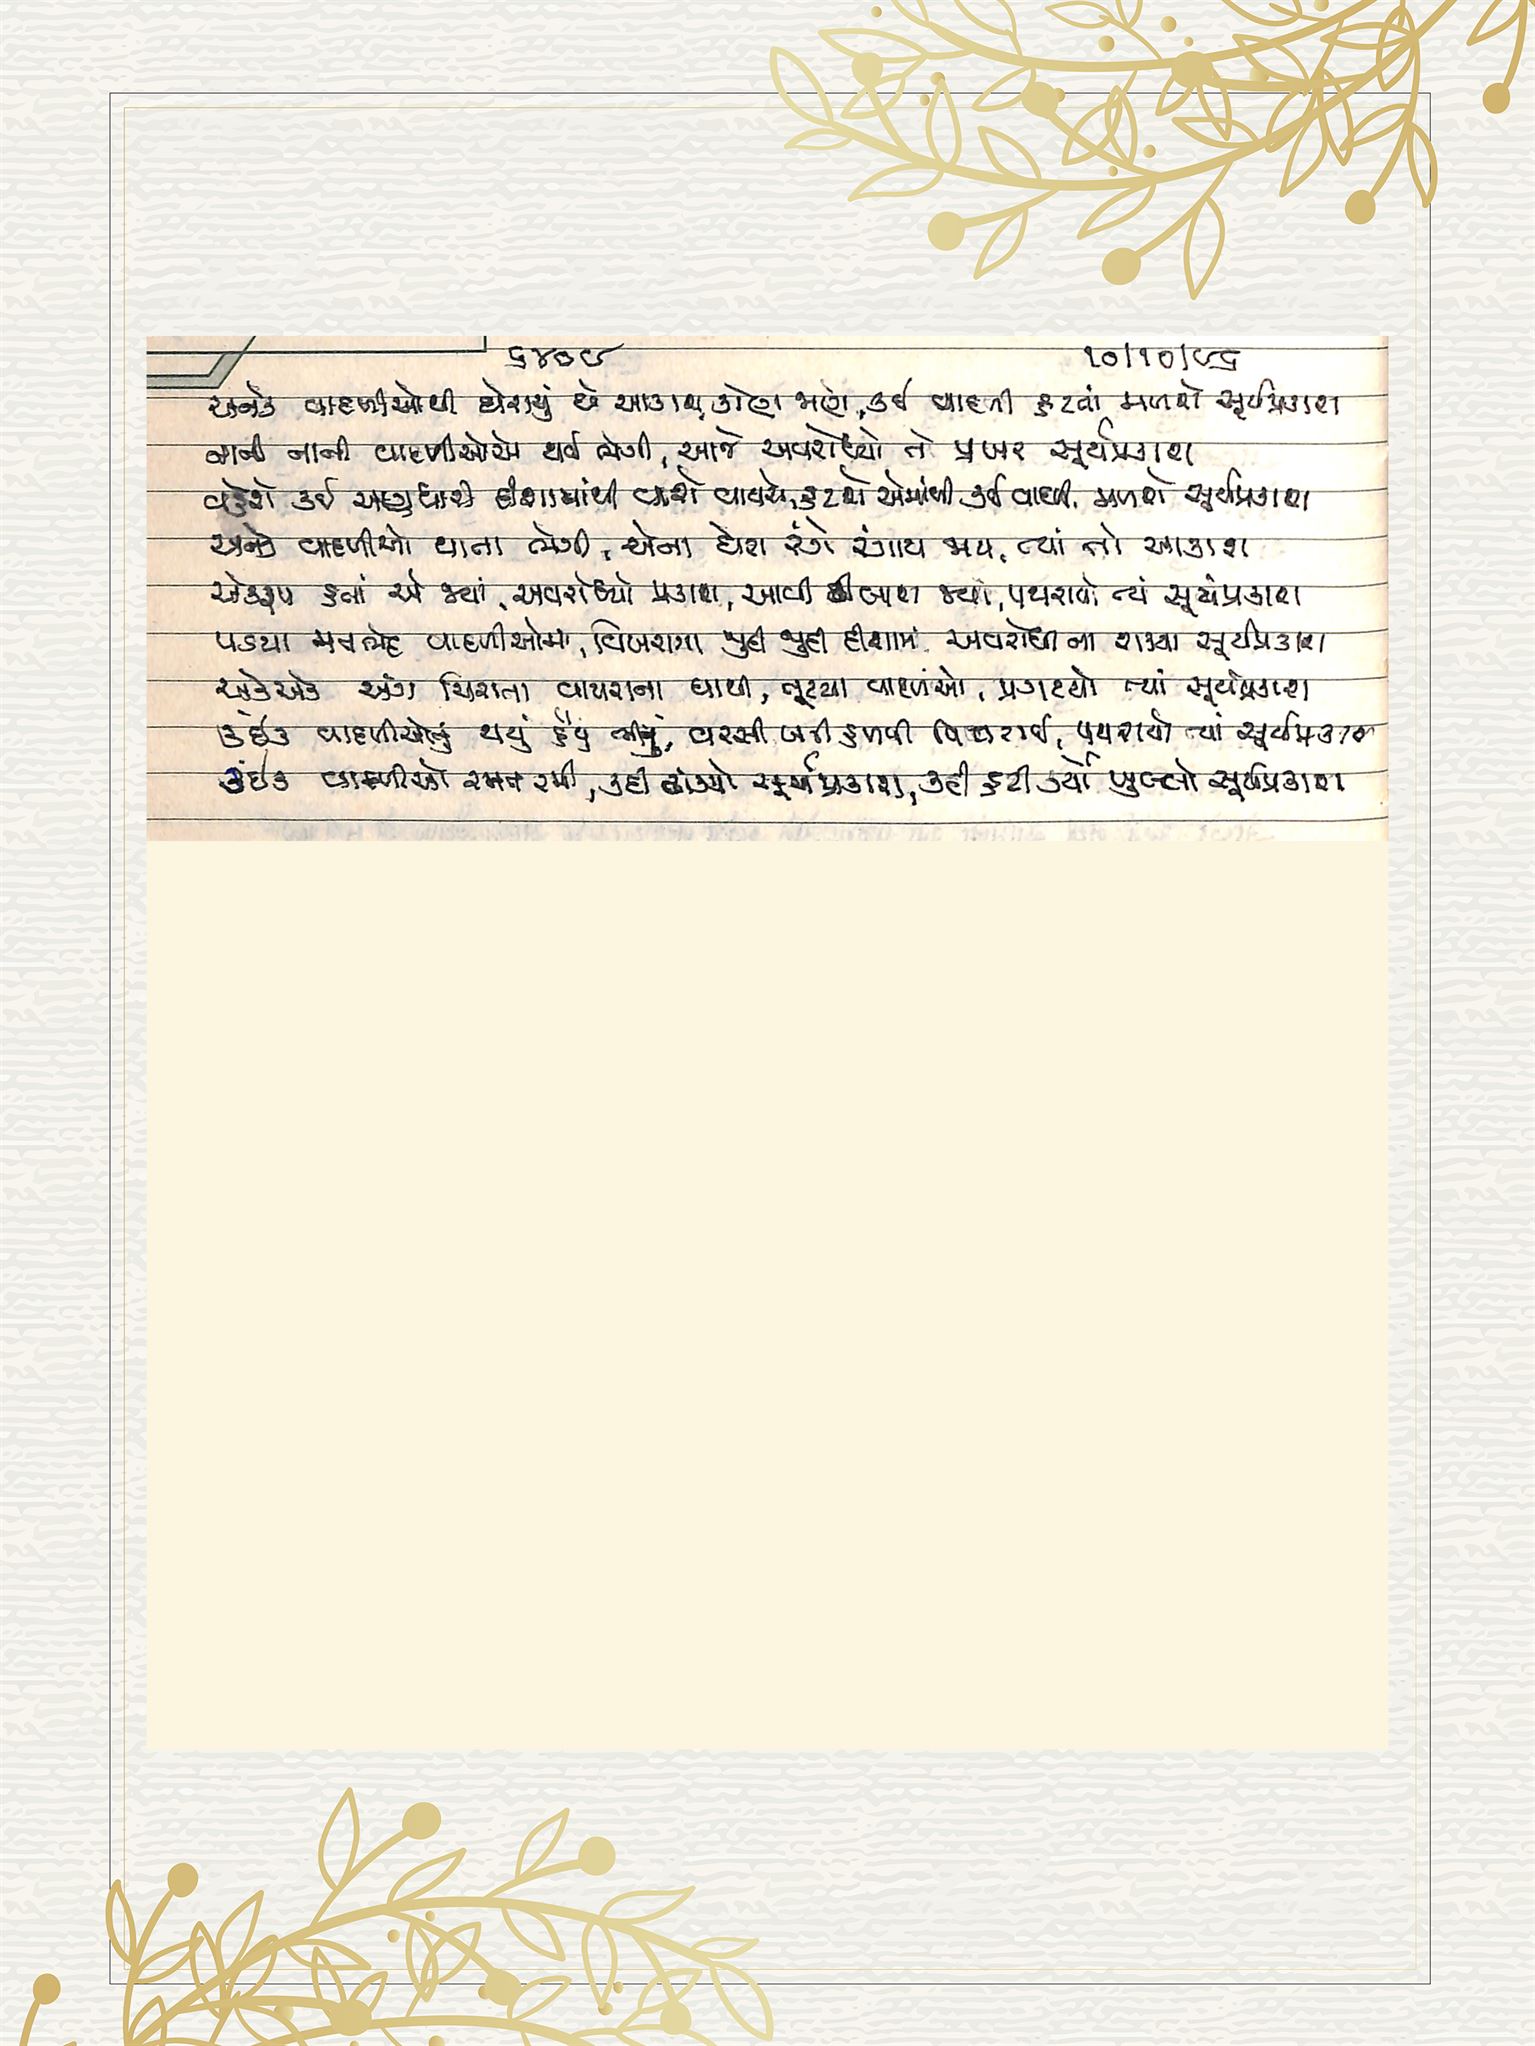 ૬૪૦૯ ૧૦/૧૦/૯૬
અનેક વાદળીઓથી ઘેરાયું છે આકાશ, કોણ જાણે, કઈ વાદળી ફુટતાં મળશે સૂર્યપ્રકાશ
નાની નાની વાદળીઓએ થઈ ભેગી, આજે અવરોધ્યો તો પ્રખર સૂર્યપ્રકાશ
કઈ અણધારી દીશામાંથી વાશે વાયરો, ફુટશે એમાંથી કઈ વાદળી, મળશે સૂર્યપ્રકાશ
અનેક વાદળીઓ થાતા ભેગી, એના ઘેરા રંગે રંગાય જાય, ત્યાં તો આકાશ
એકરૂપ બનાં એ જ્યાં, અવરોધ્યો પ્રકાશ, આવી જ્યાં, પથરાયો ત્યાં સૂર્યપ્રકાશ
પડયા મનભેદ વાદળીઓમાં, વિખરાયા જુદી જુદી દીશામાં અવરોધી ના શક્યા સૂર્યપ્રકાશ
એકેએક અંગ ચિરાતા વાયરાના ઘાથી, તૂટયા વાદળીઓ, પ્રગટયો ત્યાં સૂર્યપ્રકાશ
કંઈક વાદળીઓનું થયું હૈયું ભીનું, વરસી બની હળવી વિખરાઈ, પથરાયો ત્યાં સૂર્યપ્રકાશ
કંઈક વાદળીઓ રમત રમી, કદી રોક્યો સૂર્યપ્રકાશ, કદી હટી કર્યો ખુલ્લો સૂર્યપ્રકાશ